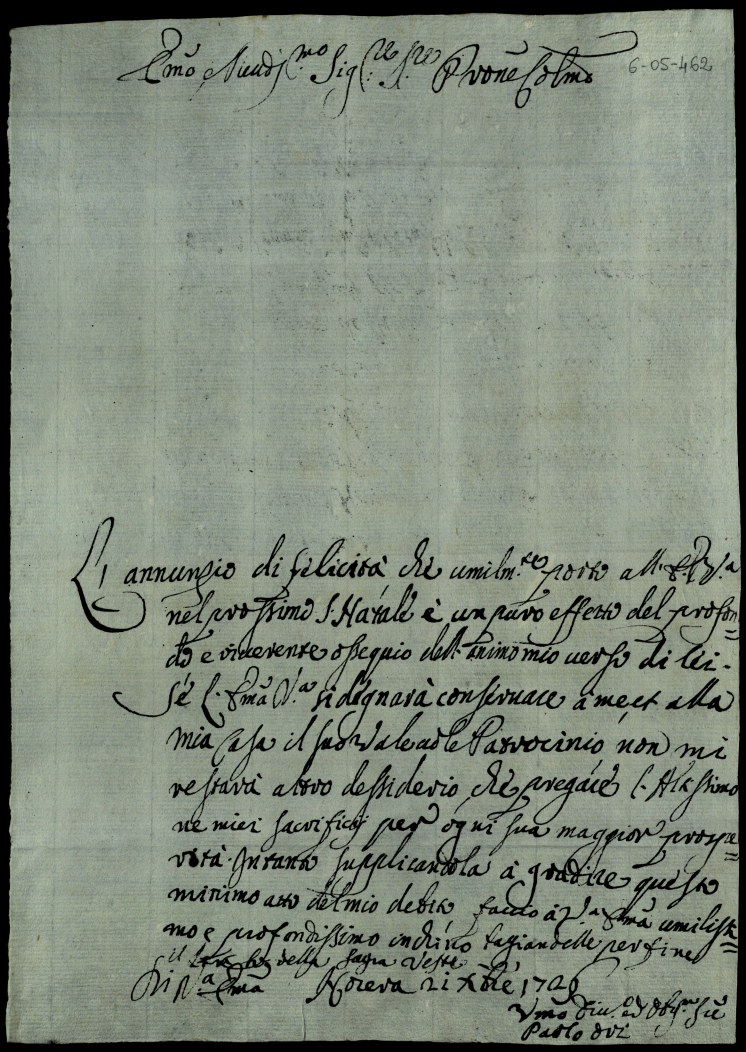 Emo Riendis:mo Sig:re Sig:re Pvone Colmo
6-05-462
L'annunzio di felicità che umilm.te porto all' E. V.a
nel prossimo S. Natale è un puro effetto del profon=
do e riverente ossequio dell' animo mio verso di lei.
Se l' Ema V.a si degnarà conservare à me et alla
mia Casa il suo Valevole Patrocinio non mi
restarà altro dessiderio, che pregare l' Altissimo
ne miei sacrificij per ogni sua maggior prospe=
rità. Intanto supplicandola à gradire questo
minimo atto del mio debito faccio à V.a Ema umilis=
mo e profondissimo inchino baggiandole per fine
il della sagra Veste
Di V.a Ema Nocera 21 Xbre 1726
Umo Div.o ed Obl.mo
Paolo